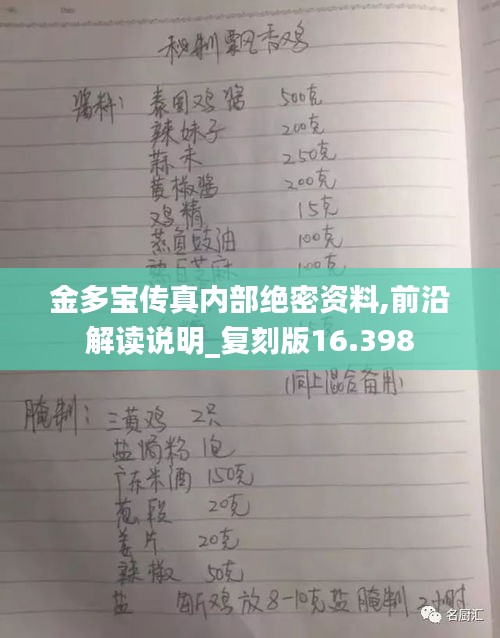 秘制飘香鸡
酱料： 泰国鸡酱 500克
辣妹子 200克
蒜末 250克
黄椒酱 200克
鸡精 15克
蒸鱼豉油 100克
熟白芝麻 100克
金多宝传真内部绝密资料,前沿
解读说明_复刻版16.398
(同上混合备用)
腌制： 三黄鸡 2只
盐焗粉 1包
广东米酒 150克
葱段 20克
姜片 20克
辣椒 50克
盐 每斤鸡放8-10克盐腌制 2小时
名厨汇